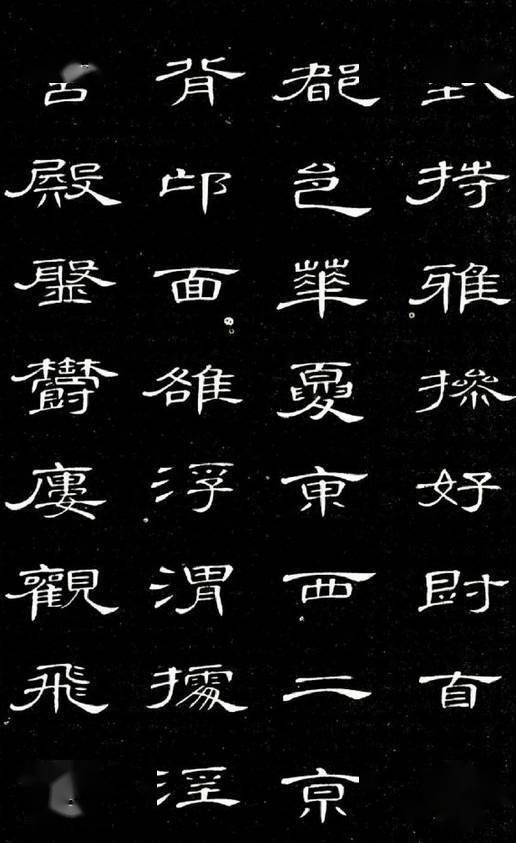 持雅操好爵自
都邑華夏東西二京
背邙面雒浮渭據涇
殿盤鬱廔觀飛